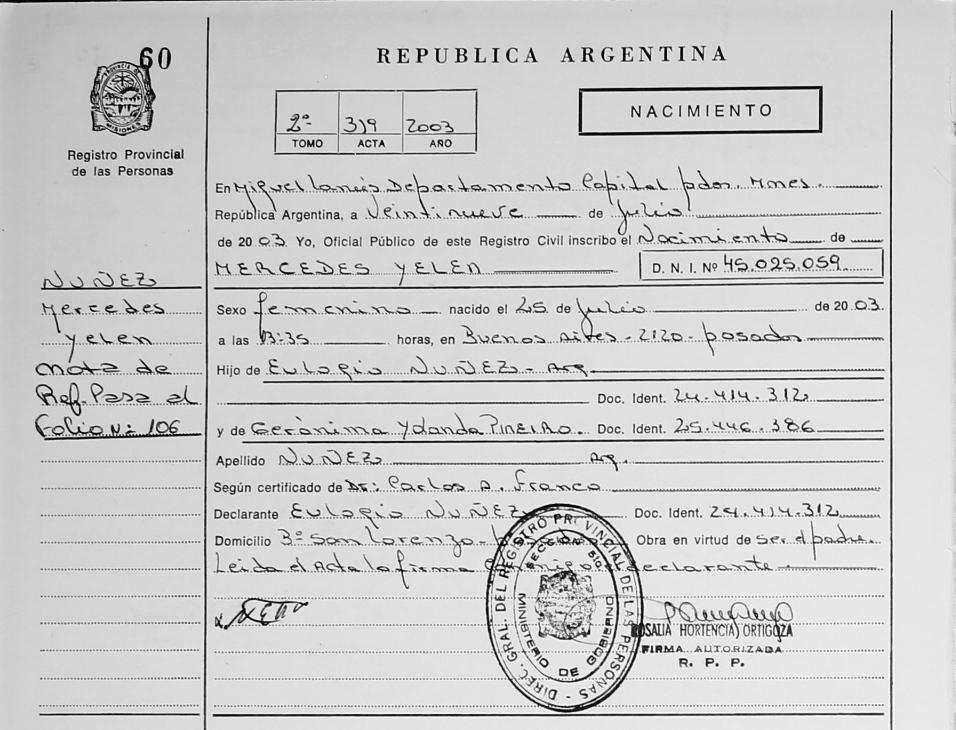 60
PROVINCIA DE MISIONES
Registro Provincial
de las Personas
NUÑEZ
Mercedes
Yelen
Nota de
Ref. Pasa al
Folio Nº 106
REPUBLICA ARGENTINA
2º 319 2003
TOMO ACTA AÑO
NACIMIENTO
En Miguel Lanús Departamento Capital pdos. Mnes.
República Argentina, a Veintinueve de Julio
de 2003 Yo, Oficial Público de este Registro Civil inscribo el Nacimiento de
MERCEDES YELEN D. N. I. Nº 45.025.059
Sexo femenino nacido el 25 de Julio de 2003
a las 13:35 horas, en Buenos Aires - 2120 - posadas
Hijo de Eulogio NUÑEZ - Arg.
Doc. Ident. 24.414.312
y de Gerónima Yolanda PIÑEIRO. Doc. Ident. 25.446.386
Apellido NUÑEZ Arg.
Según certificado de Dr: Carlos A. Franco
Declarante Eulogio NUÑEZ Doc. Ident. 24.414.312
Domicilio 3º San Lorenzo - Obra en virtud de Ser el padre.
Leida el Acta la firma declarante
DIREC. GRAL. DEL REGISTRO PROVINCIAL DE LAS PERSONAS
MINISTERIO DE GOBIERNO
ROSALIA HORTENCIA ORTIGOZA
FIRMA AUTORIZADA
R. P. P.